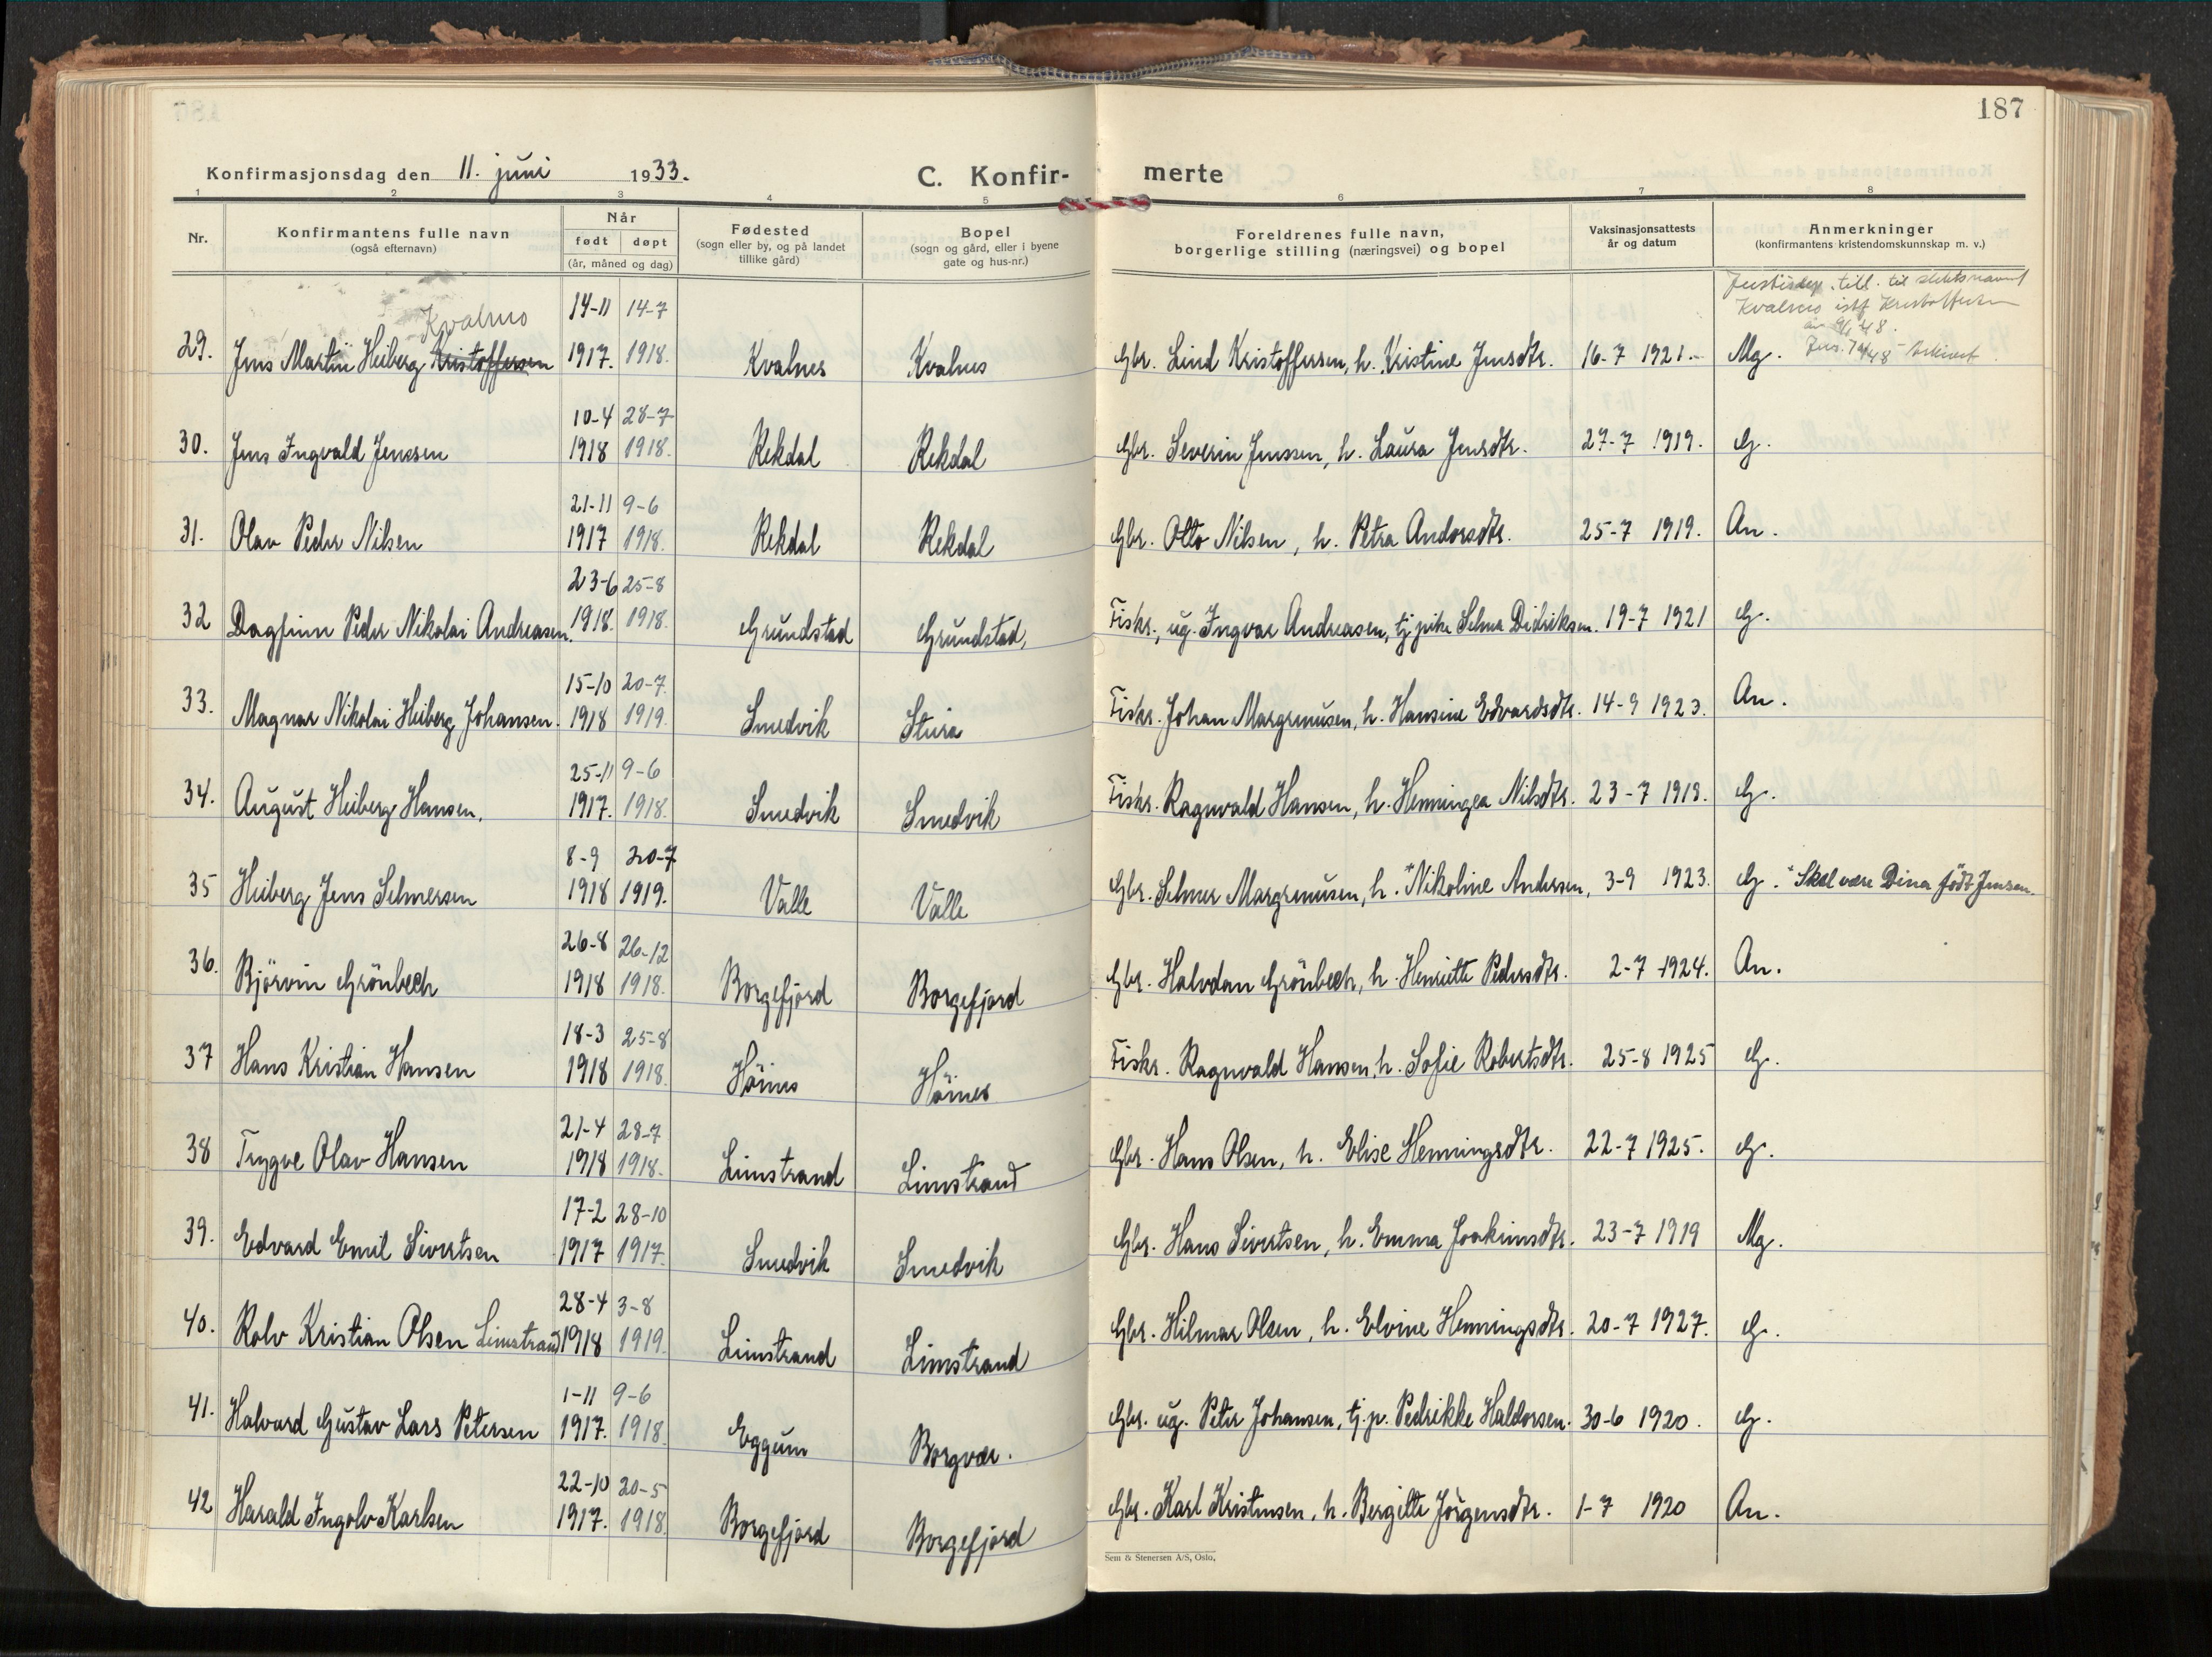 187
Konfirmasjonsdag den 11. juni 1933. C. Konfir- merte
1 2 3 4 5 6 7 8
Nr. Konfirmantens fulle navn (også efternavn) Når født døpt (år, måned og dag) Fødested (sogn eller by, og på landet tillike gård) Bopel (sogn og gård, eller i byene gate og hus-nr.) Foreldrenes fulle navn, borgerlige stilling (næringsvei) og bopel Vaksinasjonsattests år og datum Anmerkninger (konfirmantens kristendomskunnskap m. v.)
Justisdep. till. til slektsnavnet
Kvalnes istf Kristoffersen
Kvalnes 14-11 14-7
29. Jens Martin Heiberg Kristoffersen 1917. 1918. Kvalnes Kvalnes Gbr. Lind Kristoffersen, h. Kristine Jensdtr. 16-7 1921. Mg.
10-4 28-7
30. Jens Ingvald Jenssen 1918 1918. Rekdal Rekdal Gbr. Severin Jenssen, h. Laura Jensdtr. 27-7 1919. G.
21-11 9-6
31. Olav Peder Nilsen 1917 1918. Rekdal Rekdal Gbr. Otto Nilsen, h. Petra Andorsdtr. 25-7 1919. An.
23-6 25-8
32 Dagfinn Peder Nikolai Andreasen. 1918. 1918. Grundstad Grundstad, Fiskr., ug. Ingvar Andreasen, tj. pike Selma Didriksen. 19-7 1921 G.
15-10 20-7.
33. Magnar Nikolai Heiberg Johansen. 1918 1919. Smedvik Stura Fiskr. Johan Margrenusen, h. Hansine Edvardsdtr. 14-9 1923. An.
25-11 9-6
34. August Heiberg Hansen. 1917. 1918. Smedvik Smedvik Fiskr. Ragnvald Hansen, h. Henningea Nilsdtr. 23-7 1918. G.
8-9 20-7
35 Heiberg Jens Selmersen 1918 1919. Valle Valle Gbr. Selmer Margrenusen, h. *Nikoline Andersen, 3-9 1923. G. * Skal være Dina født Jensen.
26-8 26-12
36. Björvin Grönbech 1918 1918. Borgefjord Borgefjord Gbr. Halvdan Grönbech, h. Henriette Pedersdtr. 2-7 1924. An.
18-3 25-8
37 Hans Kristian Hansen 1918 1918. Höines Höines Fiskr. Ragnvald Hansen, h. Sofie Robertsdtr. 25-8 1925 G.
21-4 28-7
38 Trygve Olav Hansen 1918 1918. Limstrand Limstrand Gbr. Hans Olsen, h. Elise Henningsdtr. 22-7 1925. G.
17-2 28-10
39. Edvard Emil Sivertsen 1917 1917. Smedvik Smedvik Gbr. Hans Sivertsen, h. Emma Joakimsdtr. 23-7 1919 Mg.
28-4 3-8
40. Rolv Kristian Olsen Limstrand 1918 1919. Limstrand Limstrand Gbr. Hilmar Olsen, h. Elvine Henningsdtr. 20-7 1927. G.
1-11 9-6
41. Halvard Gustav Lars Petersen 1917. 1918. Eggum Borgvær. Gbr. ug. Peter Johansen, tj. p. Pedrikke Haldorsen. 30-6 1920. G.
22-10 20-5
42 Harald Ingolv Karlsen 1917. 1918. Borgefjord Borgefjord Gbr. Karl Kristensen, h. Bergitte Jörgensdtr. 1-7 1920 An.
Sem & Stenersen A/S, Oslo.